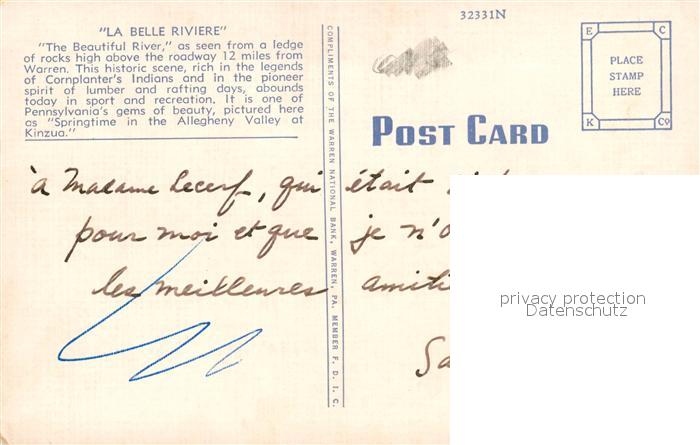 32331N
"LA BELLE RIVIERE"
"The Beautiful River," as seen from a ledge
of rocks high above the roadway 12 miles from
Warren. This historic scene, rich in the legends
of Cornplanter's Indians and in the pioneer
spirit of lumber and rafting days, abounds
today in sport and recreation. It is one of
Pennsylvania's gems of beauty, pictured here
as "Springtime in the Allegheny Valley at
Kinzua."
COMPLIMENTS OF THE WARREN NATIONAL BANK, WARREN, PA. MEMBER F. D. I. C.
E C
PLACE
STAMP
HERE
K Co
POST CARD
à Madame Lecerf, qui était
pour moi et que je n'o
les meilleures amiti
Sa
privacy protection
Datenschutz